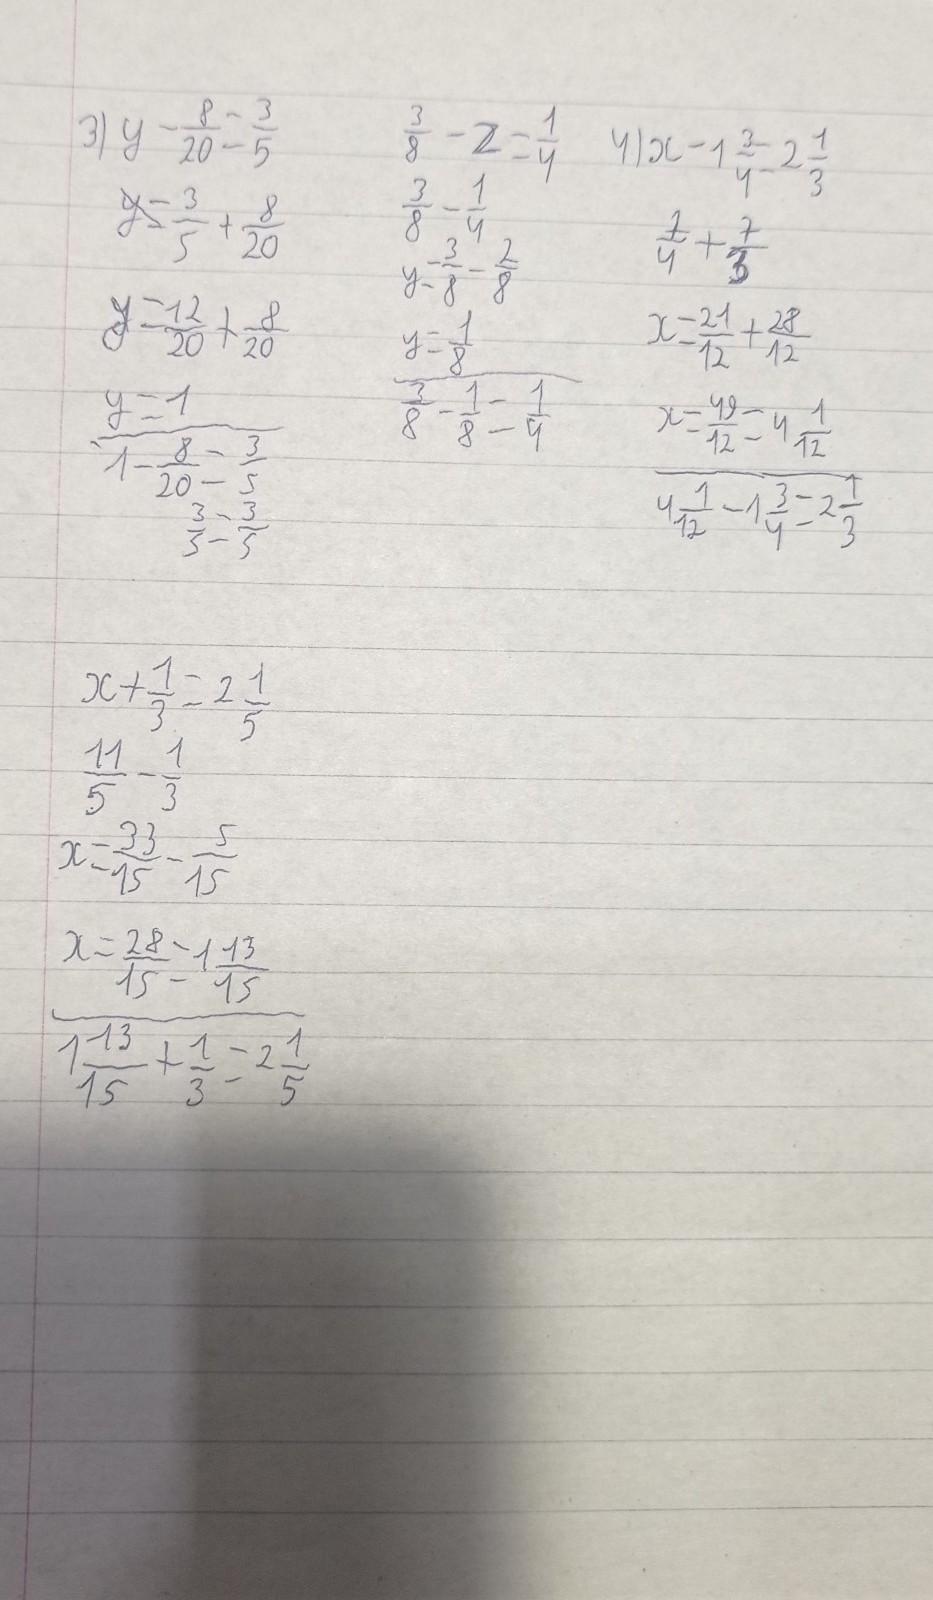 3) y - 8/20 = 3/5
y = 3/5 + 8/20
y = 12/20 + 8/20
y = 1
1 - 8/20 = 3/5
3/5 = 3/5
3/8 - z = 1/4
3/8 - 1/4
y = 3/8 - 2/8
y = 1/8
3/8 - 1/8 = 1/4
4) x - 1 3/4 = 2 1/3
7/4 + 7/3
x = 21/12 + 28/12
x = 49/12 = 4 1/12
4 1/12 - 1 3/4 = 2 1/3
x + 1/3 = 2 1/5
11/5 - 1/3
x = 33/15 - 5/15
x = 28/15 = 1 13/15
1 13/15 + 1/3 = 2 1/5